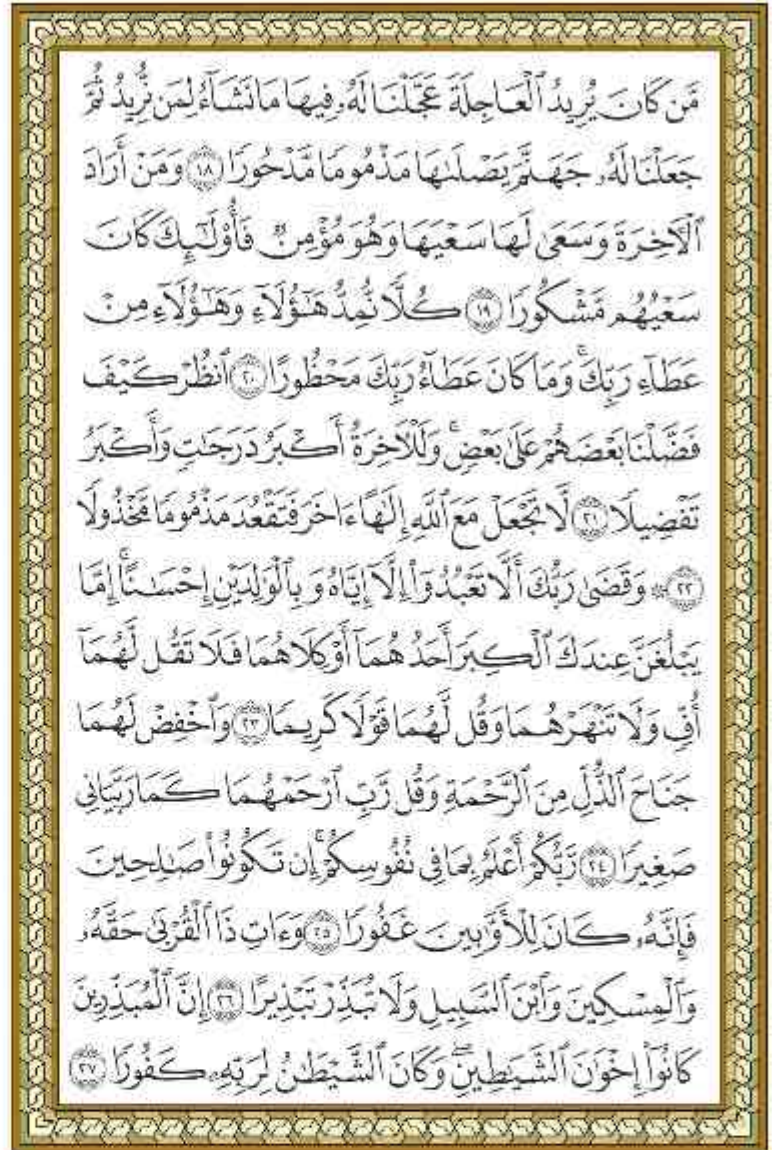 مَّن كَانَ يُرِيدُ ٱلْعَاجِلَةَ عَجَّلْنَا لَهُۥ فِيهَا مَا نَشَآءُ لِمَن نُّرِيدُ ثُمَّ
جَعَلْنَا لَهُۥ جَهَنَّمَ يَصْلَىٰهَا مَذْمُومًا مَّدْحُورًا ﴿١٨﴾ وَمَنْ أَرَادَ
ٱلْأَخِرَةَ وَسَعَىٰ لَهَا سَعْيَهَا وَهُوَ مُؤْمِنٌ فَأُو۟لَـٰٓئِكَ كَانَ
سَعْيُهُم مَّشْكُورًا ﴿١٩﴾ كُلًّا نُّمِدُّ هَـٰٓؤُلَآءِ وَهَـٰٓؤُلَآءِ مِنْ
عَطَآءِ رَبِّكَ ۚ وَمَا كَانَ عَطَآءُ رَبِّكَ مَحْظُورًا ﴿٢٠﴾ ٱنظُرْ كَيْفَ
فَضَّلْنَا بَعْضَهُمْ عَلَىٰ بَعْضٍ ۚ وَلَلْأَخِرَةُ أَكْبَرُ دَرَجَـٰتٍ وَأَكْبَرُ
تَفْضِيلًا ﴿٢١﴾ لَّا تَجْعَلْ مَعَ ٱللَّهِ إِلَـٰهًا ءَاخَرَ فَتَقْعُدَ مَذْمُومًا مَّخْذُولًا
﴿٢٢﴾ ۞ وَقَضَىٰ رَبُّكَ أَلَّا تَعْبُدُوٓا۟ إِلَّآ إِيَّاهُ وَبِٱلْوَٰلِدَيْنِ إِحْسَـٰنًا ۚ إِمَّا
يَبْلُغَنَّ عِندَكَ ٱلْكِبَرَ أَحَدُهُمَآ أَوْ كِلَاهُمَا فَلَا تَقُل لَّهُمَآ
أُفٍّ وَلَا تَنْهَرْهُمَا وَقُل لَّهُمَا قَوْلًا كَرِيمًا ﴿٢٣﴾ وَٱخْفِضْ لَهُمَا
جَنَاحَ ٱلذُّلِّ مِنَ ٱلرَّحْمَةِ وَقُل رَّبِّ ٱرْحَمْهُمَا كَمَا رَبَّيَانِى
صَغِيرًا ﴿٢٤﴾ رَّبُّكُمْ أَعْلَمُ بِمَا فِى نُفُوسِكُمْ ۚ إِن تَكُونُوا۟ صَـٰلِحِينَ
فَإِنَّهُۥ كَانَ لِلْأَوَّٰبِينَ غَفُورًا ﴿٢٥﴾ وَءَاتِ ذَا ٱلْقُرْبَىٰ حَقَّهُۥ
وَٱلْمِسْكِينَ وَٱبْنَ ٱلسَّبِيلِ وَلَا تُبَذِّرْ تَبْذِيرًا ﴿٢٦﴾ إِنَّ ٱلْمُبَذِّرِينَ
كَانُوٓا۟ إِخْوَٰنَ ٱلشَّيَـٰطِينِ ۖ وَكَانَ ٱلشَّيْطَـٰنُ لِرَبِّهِۦ كَفُورًا ﴿٢٧﴾